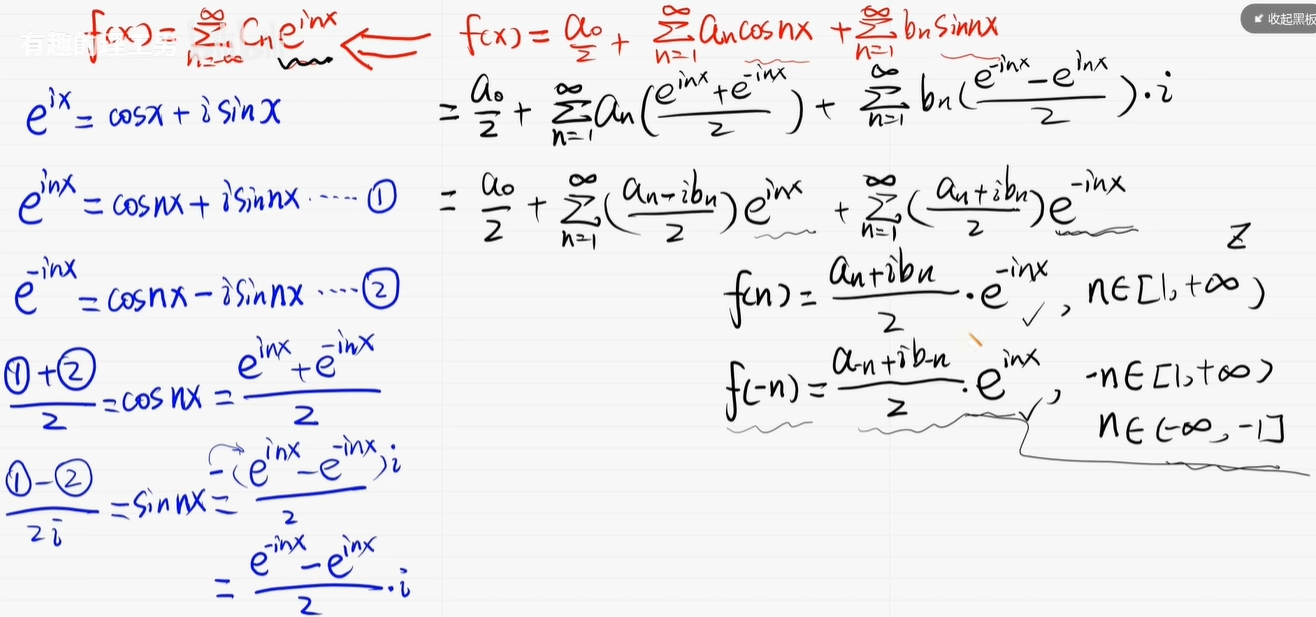 f(x) = \sum_{n=-\infty}^{\infty} C_n e^{inx} ⇐ f(x) = \frac{a_0}{2} + \sum_{n=1}^{\infty} a_n cos nx + \sum_{n=1}^{\infty} b_n sin nx
收起黑板
e^{ix} = cosx + i sinx
e^{inx} = cosnx + i sinnx ····· ①
e^{-inx} = cosnx - i sinnx ····· ②
\frac{①+②}{2} = cosnx = \frac{e^{inx} + e^{-inx}}{2}
\frac{①-②}{2i} = sinnx = \frac{-(e^{inx} - e^{-inx})i}{2}
= \frac{e^{-inx} - e^{inx}}{2} · i
= \frac{a_0}{2} + \sum_{n=1}^{\infty} a_n (\frac{e^{inx} + e^{-inx}}{2}) + \sum_{n=1}^{\infty} b_n (\frac{e^{-inx} - e^{inx}}{2}) · i
= \frac{a_0}{2} + \sum_{n=1}^{\infty} (\frac{a_n - ib_n}{2}) e^{inx} + \sum_{n=1}^{\infty} (\frac{a_n + ib_n}{2}) e^{-inx}
Z
f(n) = \frac{a_n + ib_n}{2} · e^{-inx} , n∈[1,+∞)
f(-n) = \frac{a_{-n} + ib_{-n}}{2} · e^{inx} , -n∈[1,+∞)
n∈(-∞,-1]